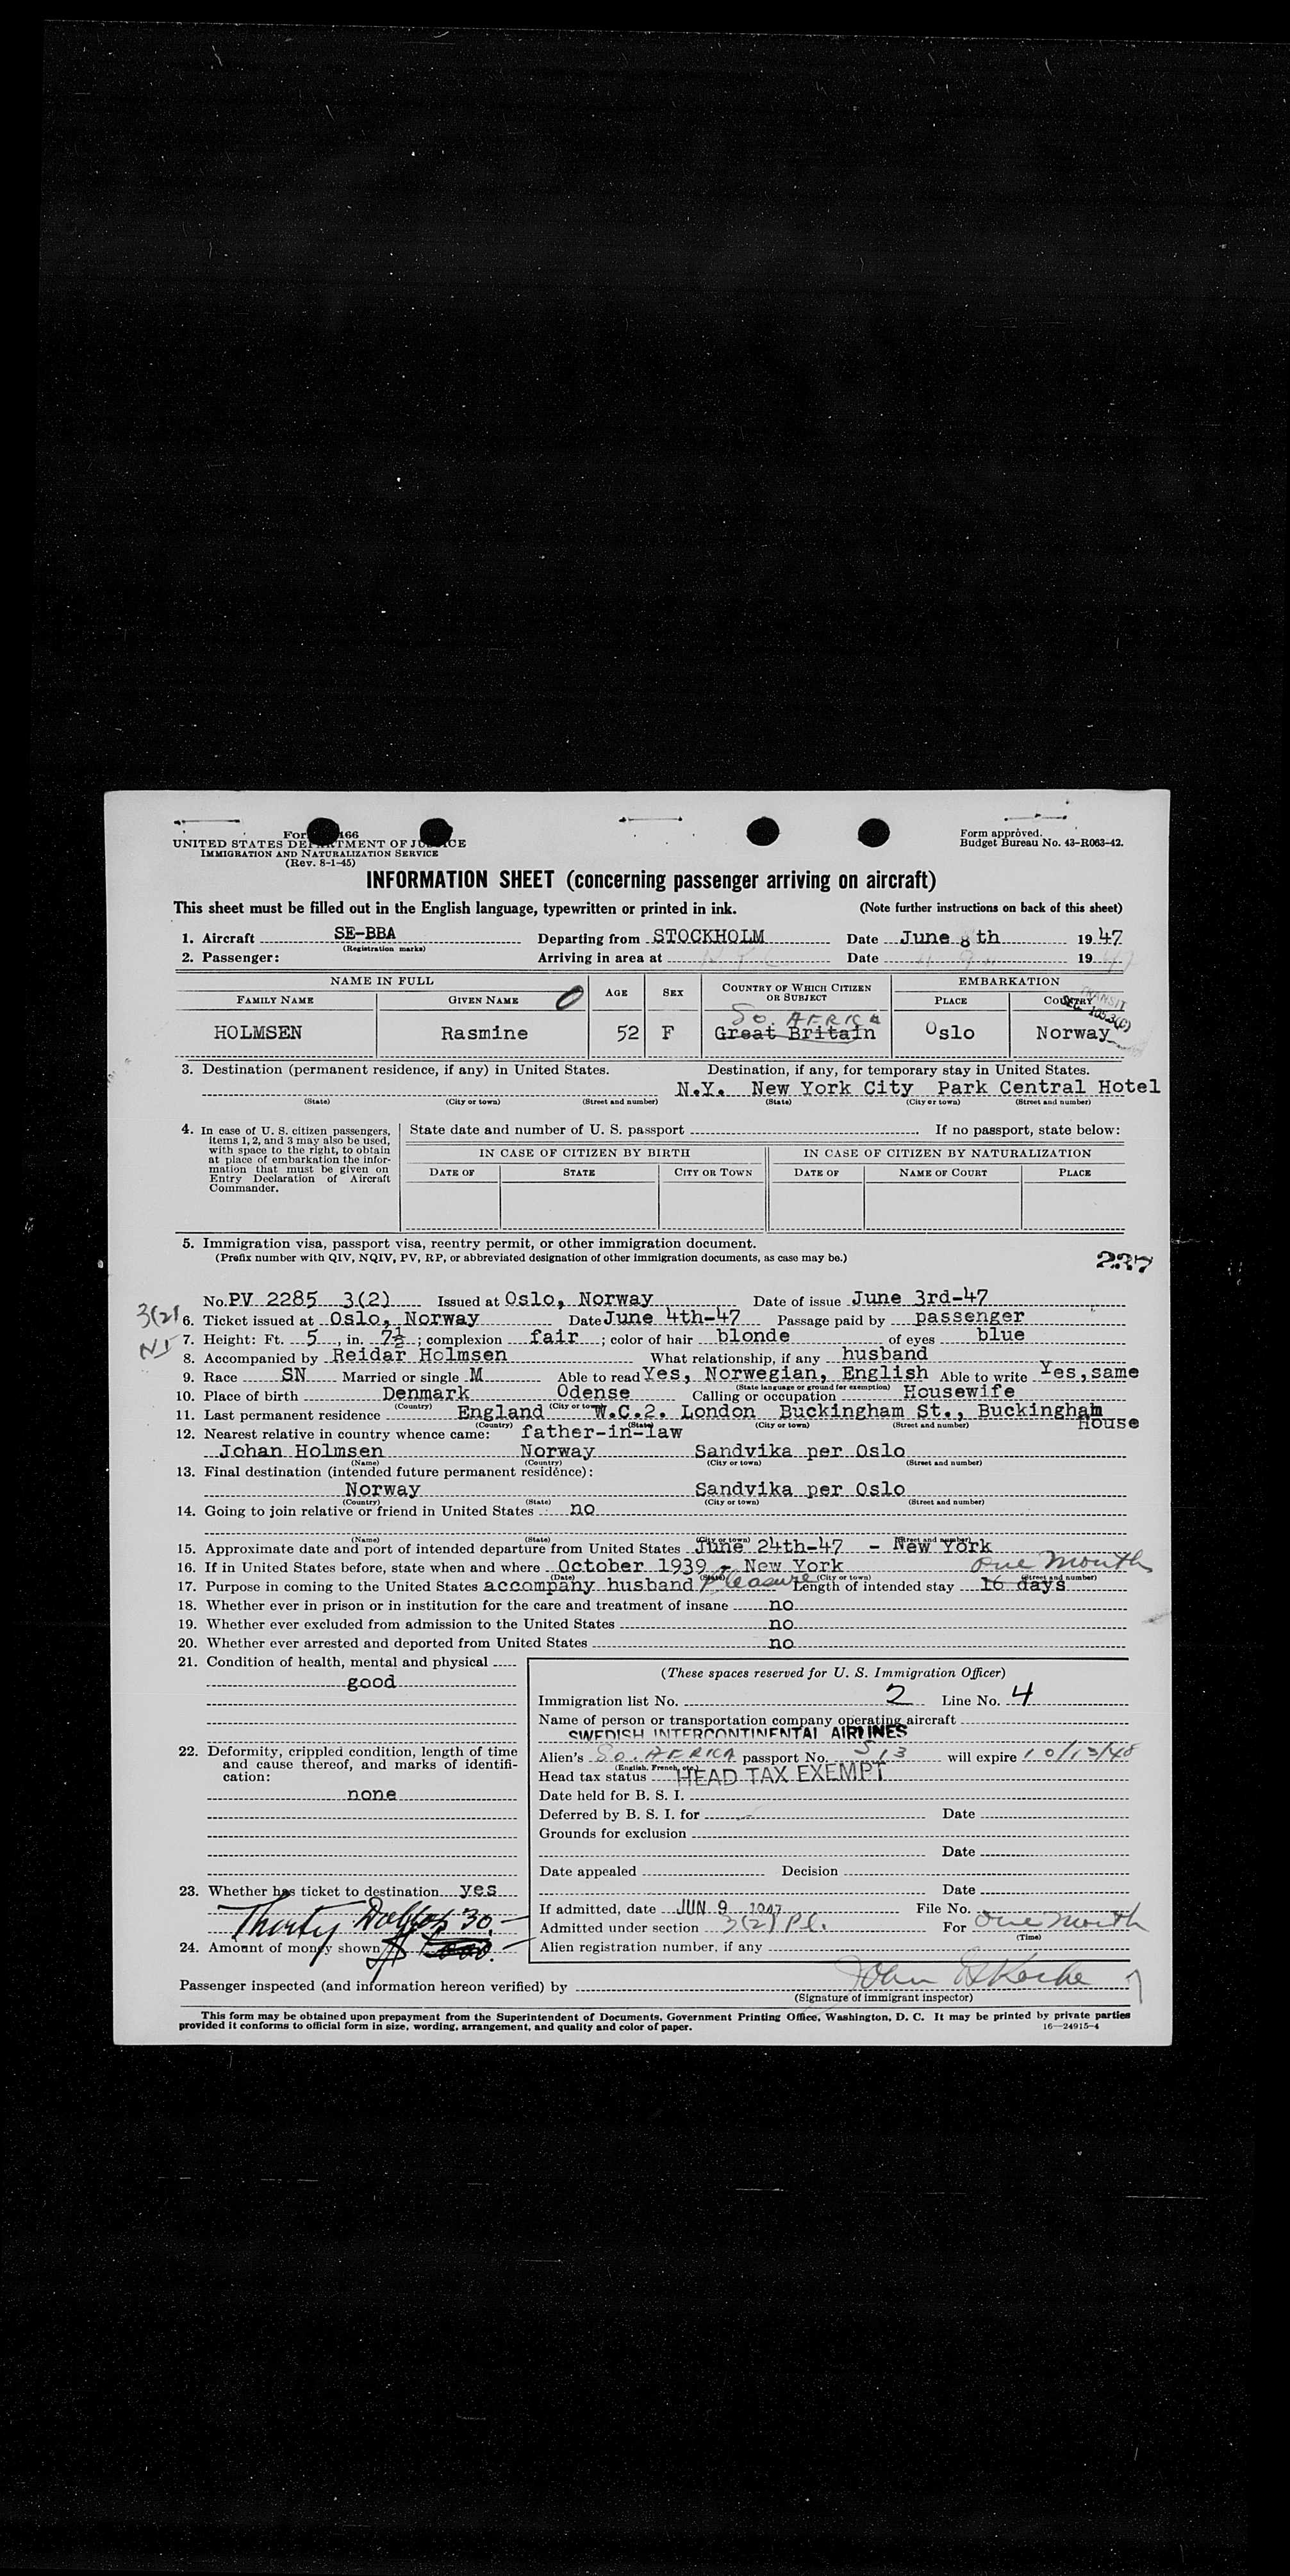 Form 466
UNITED STATES DEPARTMENT OF JUSTICE
IMMIGRATION AND NATURALIZATION SERVICE
(Rev. 8-1-45)
Form approved.
Budget Bureau No. 43-R063-42.
INFORMATION SHEET (concerning passenger arriving on aircraft)
This sheet must be filled out in the English language, typewritten or printed in ink. (Note further instructions on back of this sheet)
1. Aircraft SE-BBA Departing from STOCKHOLM Date June 8th 1947
(Registration marks)
2. Passenger: Arriving in area at Date 19
NAME IN FULL AGE SEX COUNTRY OF WHICH CITIZEN OR SUBJECT EMBARKATION
FAMILY NAME GIVEN NAME PLACE COUNTRY
TRANSIT
SEC. 165.3(c)
So. AFRICA
HOLMSEN Rasmine 52 F Great Britain Oslo Norway
3. Destination (permanent residence, if any) in United States. Destination, if any, for temporary stay in United States.
N.Y. New York City Park Central Hotel
(State) (City or town) (Street and number) (State) (City or town) (Street and number)
4. In case of U. S. citizen passengers, items 1, 2, and 3 may also be used, with space to the right, to obtain at place of embarkation the information that must be given on Entry Declaration of Aircraft Commander.
State date and number of U. S. passport If no passport, state below:
IN CASE OF CITIZEN BY BIRTH IN CASE OF CITIZEN BY NATURALIZATION
DATE OF STATE CITY OR TOWN DATE OF NAME OF COURT PLACE
5. Immigration visa, passport visa, reentry permit, or other immigration document.
(Prefix number with QIV, NQIV, PV, RP, or abbreviated designation of other immigration documents, as case may be.)
237
No. PV 2285 3(2) Issued at Oslo, Norway Date of issue June 3rd-47
3(2)
6. Ticket issued at Oslo, Norway Date June 4th-47 Passage paid by passenger
7. Height: Ft. 5 in. 7½ ; complexion fair ; color of hair blonde of eyes blue
8. Accompanied by Reidar Holmsen What relationship, if any husband
9. Race SN Married or single M Able to read Yes, Norwegian, English Able to write Yes, same
(State language or ground for exemption)
10. Place of birth Denmark Odense Calling or occupation Housewife
(Country) (City or town)
11. Last permanent residence England W.C.2. London Buckingham St., Buckingham House
(Country) (State) (City or town) (Street and number)
12. Nearest relative in country whence came: father-in-law
Johan Holmsen Norway Sandvika per Oslo
(Name) (Country) (City or town) (Street and number)
13. Final destination (intended future permanent residence):
Norway Sandvika per Oslo
(Country) (State) (City or town) (Street and number)
14. Going to join relative or friend in United States no
(Name) (State) (City or town) (Street and number)
15. Approximate date and port of intended departure from United States June 24th-47 - New York
16. If in United States before, state when and where October 1939 - New York one month
(Date) (State) (City or town) (Street and number)
17. Purpose in coming to the United States accompany husband Pleasure Length of intended stay 16 days
18. Whether ever in prison or in institution for the care and treatment of insane no
19. Whether ever excluded from admission to the United States no
20. Whether ever arrested and deported from United States no
21. Condition of health, mental and physical
good
22. Deformity, crippled condition, length of time and cause thereof, and marks of identification:
none
23. Whether has ticket to destination yes
Thirty Dollars 30.
24. Amount of money shown $
(These spaces reserved for U. S. Immigration Officer)
Immigration list No. 2 Line No. 4
Name of person or transportation company operating aircraft
SWEDISH INTERCONTINENTAL AIRLINES
Alien's So. AFRICA passport No. 513 will expire 10/13/48
(English, French, etc.)
Head tax status HEAD TAX EXEMPT
Date held for B. S. I.
Deferred by B. S. I. for Date
Grounds for exclusion
Date
Date appealed Decision
Date
If admitted, date JUN 9 1947 File No.
Admitted under section 3(2) Pl. For one month
(Time)
Alien registration number, if any
Passenger inspected (and information hereon verified) by
(Signature of immigrant inspector)
This form may be obtained upon prepayment from the Superintendent of Documents, Government Printing Office, Washington, D. C. It may be printed by private parties
provided it conforms to official form in size, wording, arrangement, and quality and color of paper.
16—24915-4